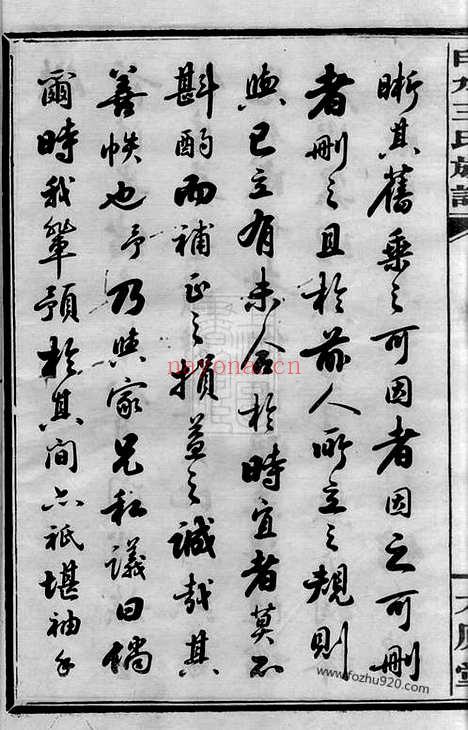 晰其舊乘之可因者因之可刪
者刪之且於前人所立之規則
與已立有未合於時宜者莫不
斟酌而補正之損益之誠哉其
善帙也予乃與家兄私議曰倘
爾時我輩預於其間亦祗堪袖手
王氏族譜
nayona.cn
www.fozhu920.com